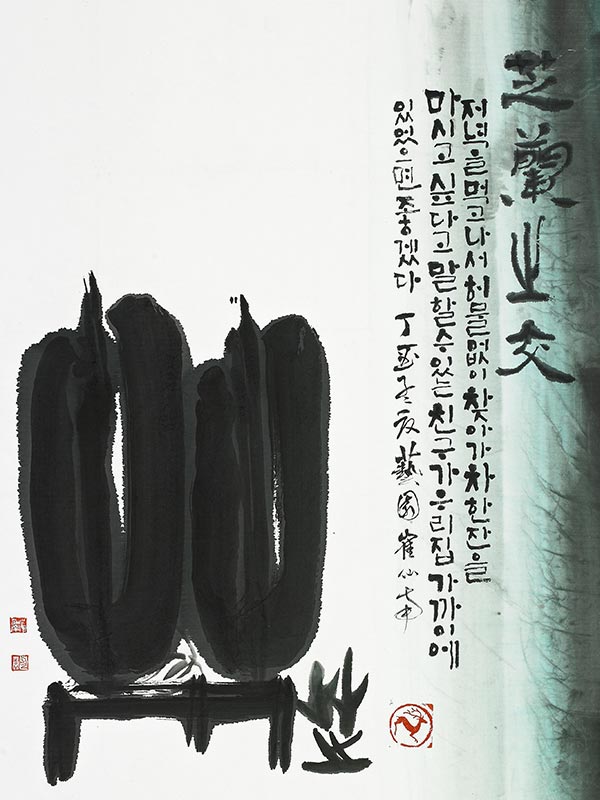 芝蘭之交
저녁을먹고나서허물없이찾아가차한잔을
마시고싶다고말할수있는친구가우리집가까이에
있었으면좋겠다 丁酉冬 友 藝園 崔仙